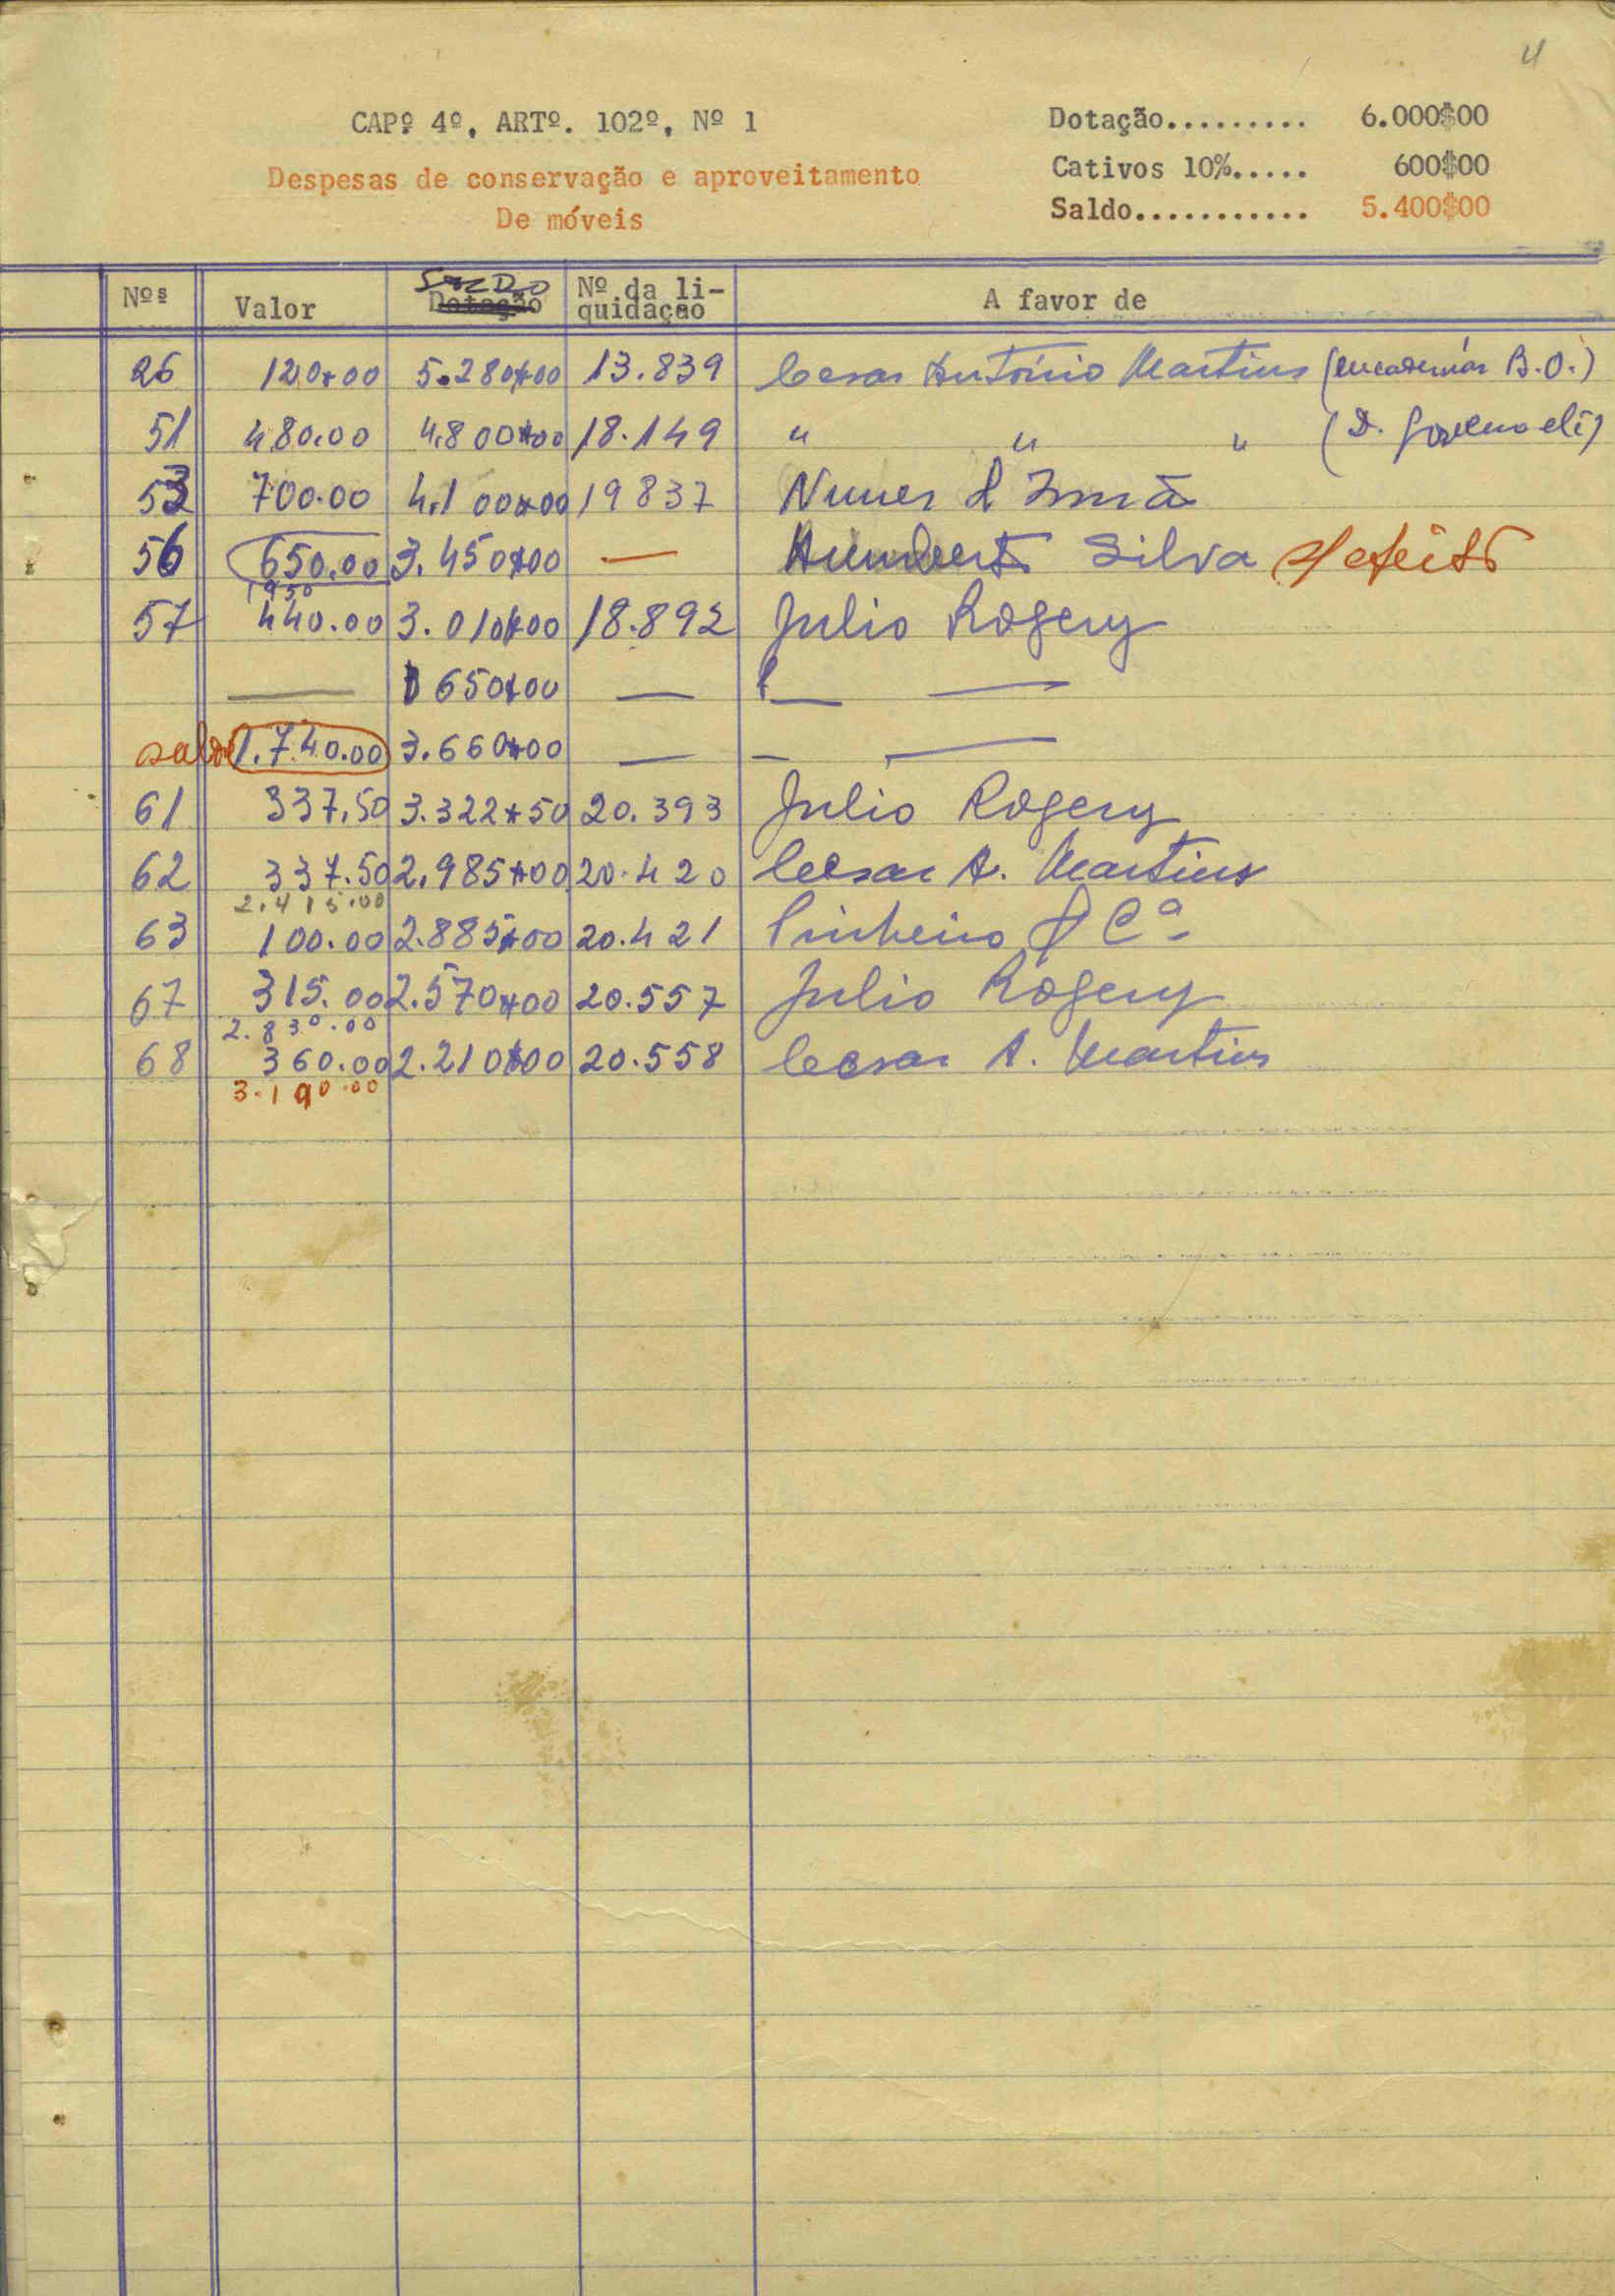 4
CAPº 4º, ARTº. 102º, Nº 1
Despesas de conservação e aproveitamento
De móveis
Dotação......... 6.000$00
Cativos 10%..... 600$00
Saldo........... 5.400$00
Nºs Valor Dotação SALDO Nº da li-quidação A favor de
26 120$00 5.280$00 13.839 Cesar António Martins (encadernar B.O.)
51 480.00 4.800$00 18.149 " " " (D. Governo eli)
53 700.00 4.100$00 19837 Nunes & Irmã
56 650.00 3.450$00 — Humberto Silva s/efeito
1950
57 440.00 3.010$00 18.892 Julio Rogery
— 650$00 — —
saldo 1.740.00 3.660$00 — — —
61 337.50 3.322$50 20.393 Julio Rogery
62 337.50 2.985$00 20.420 Cesar A. Martins
2.415.00
63 100.00 2.885$00 20.421 Pinheiro & Cª
67 315.00 2.570$00 20.557 Julio Rogery
2.830.00
68 360.00 2.210$00 20.558 Cesar A. Martins
3.190.00